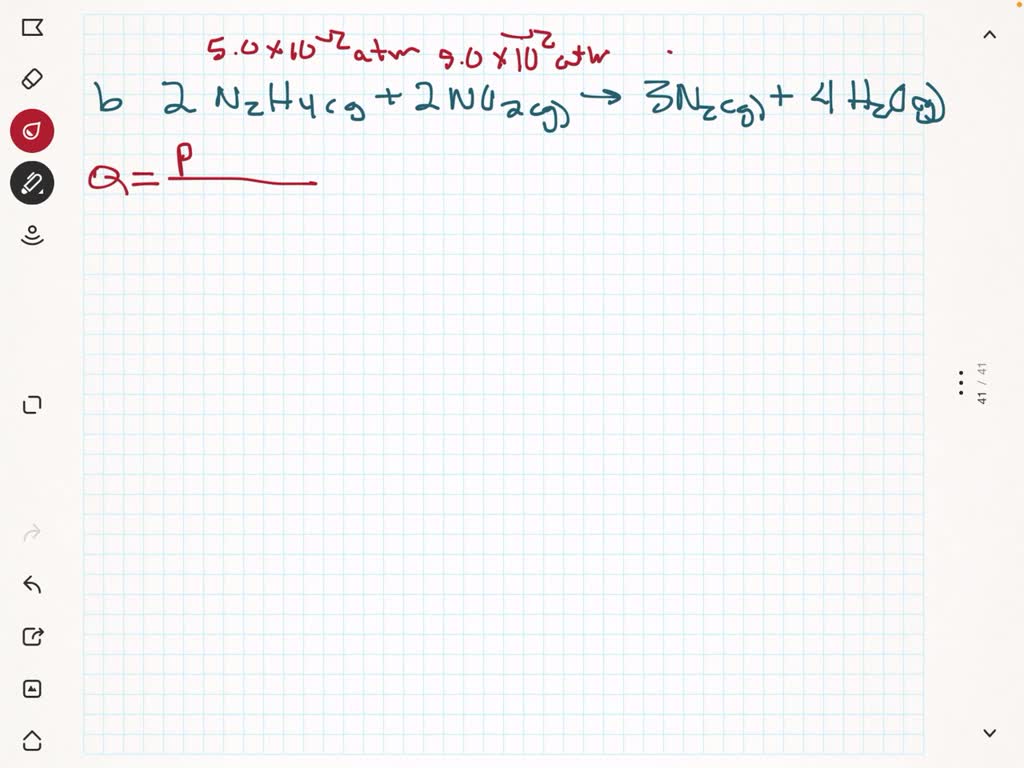 5.0×10⁻² atm 5.0×10⁻² atm
b 2 N₂H₄(g) + 2NO₂(g) → 3N₂(g) + 4H₂O(g)
Q = P
41 / 41